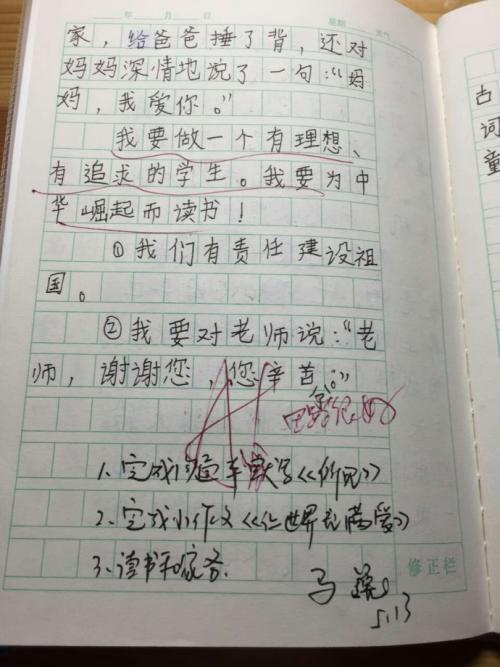 年 月 日 星期 天气
家，给爸爸捶了背，还对
妈妈深情地说了一句：“妈
妈，我爱你。”
我要做一个有理想、
有追求的学生。我要为中
华崛起而读书！
①我们有责任建设祖
国。
②我要对老师说：“老
师，谢谢您，您辛苦。”
1、完成 默写《所见》
2、完成小作文《让世界充满爱》
3、读书和家务.
修正栏
马
5.13
古
词
童